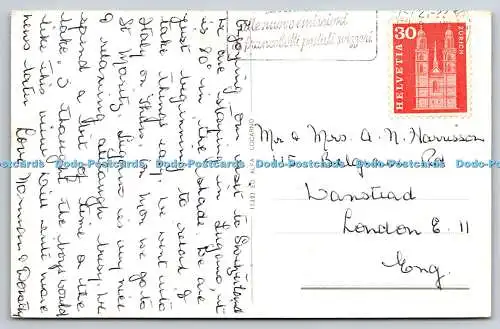 alle nuove emissioni
francobolli postali svizzeri
30
HELVETIA
ZÜRICH
Enjoying our visit to Switzerland
We are staying in Lugano, it
is 80° in the shade. We are
just beginning to rest &
take things easy, we went into
Italy on Mon we go to
St Moritz. Lugano is very nice
& relaxing although busy. We
spend a lot of time on the
lake. I thought the boys would
like this view. Will write more
news later Love Norman & Dorothy
LOCARNO
Mr & Mrs. A. N. Harrisson
15 Belgrave Rd
Wanstead
London E. 11
Eng.
Dodo-Postcards Dodo-Postcards Dodo-Postcards Dodo-Postcards Dodo-Postcards